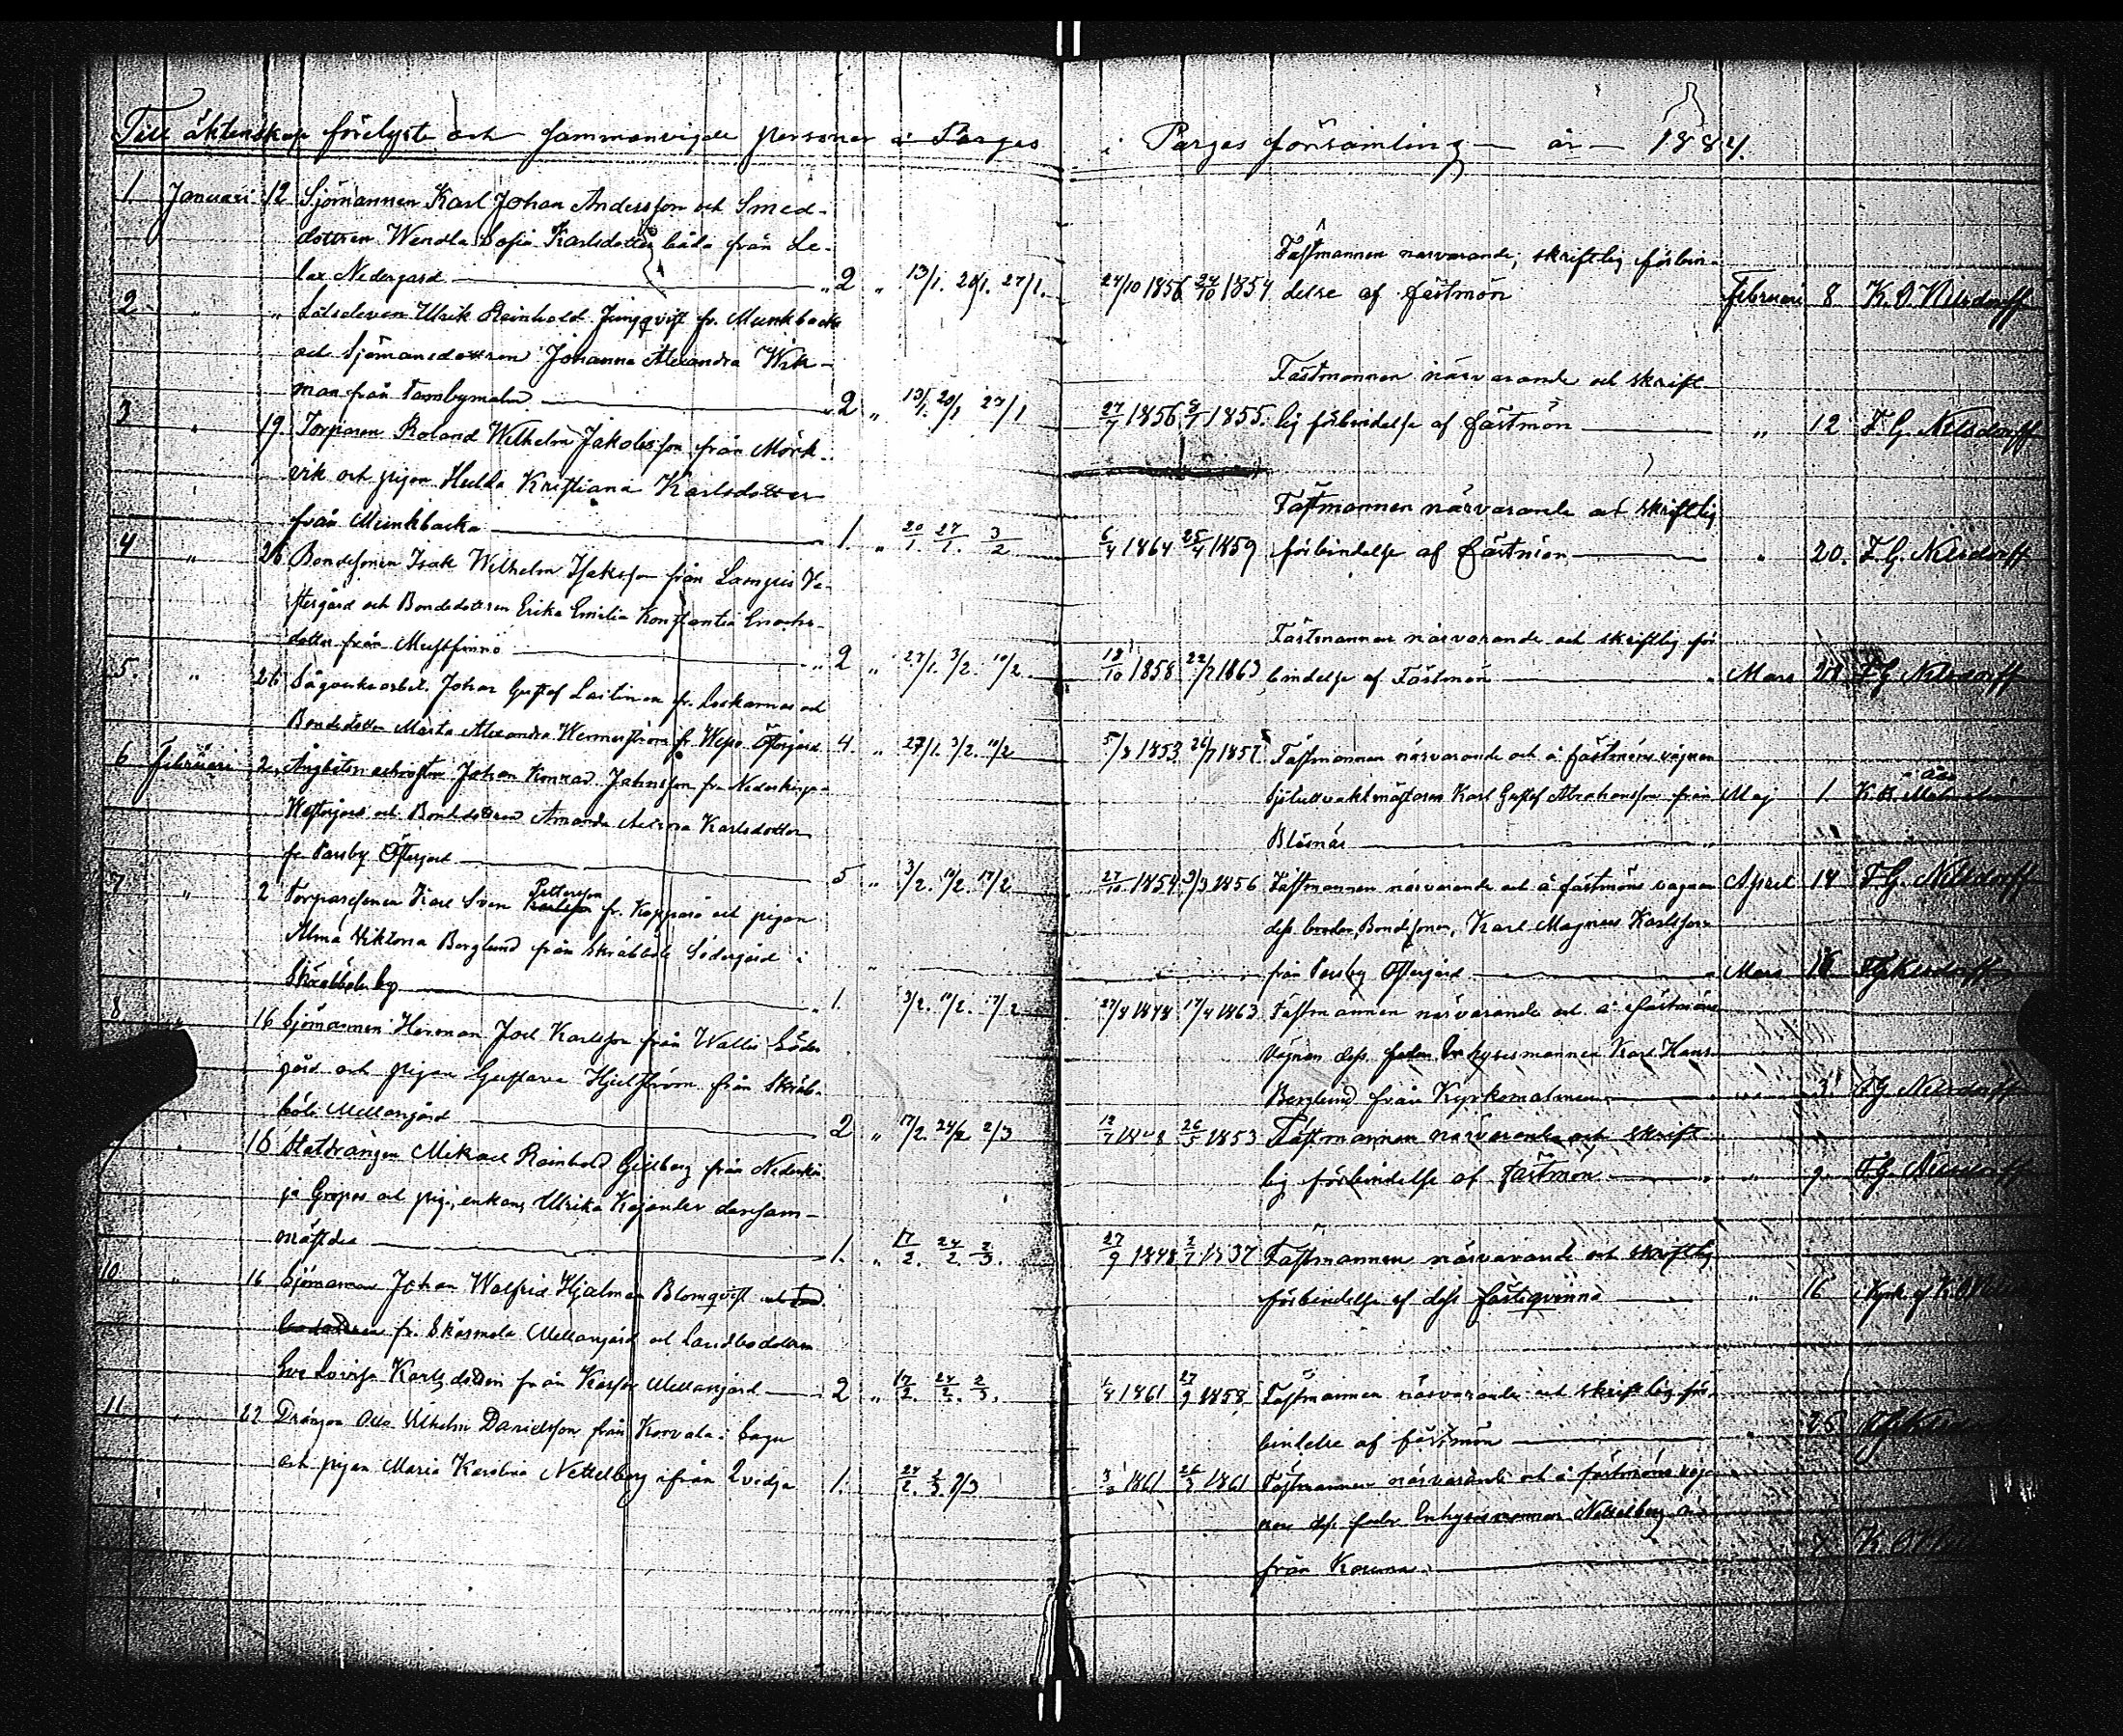 Till äktenskap förelyste och sammanvigde personer i Parges
1 Januari 12 Sjömannen Karl Johan Andersson och Smed-
dottren Wendla Sofia Karlsdotter båda från Le-
lax Nedergård 2 " 13/1. 20/1. 27/1.
2 " " Ulrik Reinhold Jungqvist fr. Munkbacka
och Sjömansdottren Johanna Alexandra Wik-
man från 2 " 13/1. 20/1 27/1
3 " 19. Torparen Roland Wilhelm Jakobsson från Mörk-
vik och pigan Hulda Kristiana Karlsdotter
från Munkbacka 1. " 20/1. 27/1. 3/2
4 " 26 Bondesonen Isak Wilhelm Isaksson från Lampis Ve-
stergård och Bondedottren Erika Emilia Konstantia Enochs-
dotter från Mustfinnö 2 " 27/1. 3/2. 10/2.
5. " 26 Sågverksarbet. Johan Gustaf Laitinen fr. och
Bondedotter Marta Alexandra Wennerström fr. Wepo Östergård 4. " 27/1. 3/2. 10/2
6 Februari 2. Johan Konrad Johnsson fr. Nederkirja-
Westergård och Bondedottren Amanda Karlsdotter
fr. Parsby Östergård 5 " 3/2. 10/2. 17/2
7 " 2 Torparesonen Karl Sven Pettersson fr. Kopparö och pigan
Alma Viktoria Berglund från Skräbböle Södergård i
Skräbböle by 1. 3/2. 10/2. 17/2
8 16 Sjömannen Herman Joel Karlsson från Wallis Söder
gård och pigan Gustava Hjelström från Skräb-
böle Mellangård 2 " 17/2. 24/2. 2/3
" 16 Statdrängen Mikael Reinhold Gillberg från
och pig., enkan, Ulrika Kajander dersam-
mastädes 1. " 17/2. 24/2. 2/3.
10 " 16 Sjöman Johan Walfrid Hjalmar Blomqvist
fr. Skärmola Mellangård och Landbodottren
Eva Lovisa Karlsdotter från Mellangård 2 " 17/2. 24/2. 2/3.
11 " 22 Drängen Wilhelm Davidsson från Korvala i Sagu
och pigan Maria Karolina Nettelberg ifrån Qvidja 1. 24/2. 2/3. 9/3
i Parges församling år 1884.
24/10 1856 24/10 1854 Fästmannen närvarande, skriftlig förbin-
delse af fästmön Februari 8 K. O. Nilsdorff
Fästmannen närvarande och skrift-
27/7 1856 1855. lig förbindelse af fästmön " 12 F. G. Nilsdorff
Fästmannen närvarande och skriftlig
6/4 1864 25/4 1859 förbindelse af fästmön " 20. F. G. Nilsdorff
Fästmannen närvarande och skriftlig för
10 1858 22/7 1863 bindelse af Fästmön Mars F G Nilsdorff
5/8 1853 1857 Fästmannen närvarande och å fästmöns vägnar
Karl Gustaf Abrahamsson från Maj 1.
Bläsnäs
27/10 1854 9/3 1856 Fästmannen närvarande och å fästmöns vägnar April 14 F. G. Nilsdorff
dess broder, Bondesonen, Karl Magnus Karlsson
från Parsby Östergård Mars
27/8 1848 17/4 1863 Fästmannen närvarande och å fästmöns
vägnar dess fader Inhysesmannen Karl Hans
Berglund från Kyrkomalmen " F G Nilsdorff
12/7 26/5 1853 Fästmannen närvarande och skrift
lig förbindelse af fästmön " 9 F G
27/9 1848 2/7 1837 Fästmannen närvarande och skriftlig
förbindelse af dess fästeqvinna " 16
1/8 1861 27/9 1858 Fästmannen närvarande och skriftlig för-
bindelse af fästmön " 25
1861 26/3 1861 Fästmannen närvarande och å fästmöns väg-
nar dess fader Inhysesmannen Nettelberg
från